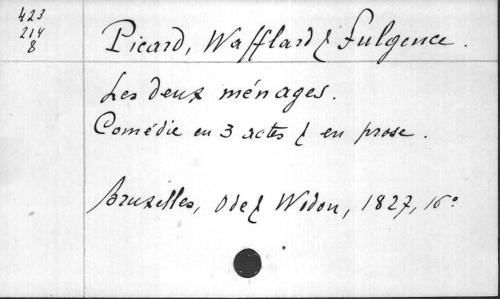 423
214
8
Picard, Wafflard & Fulgence.
Les deux ménages.
Comédie en 3 actes & en prose.
Bruxelles, Ode & Wodon, 1827, 16°